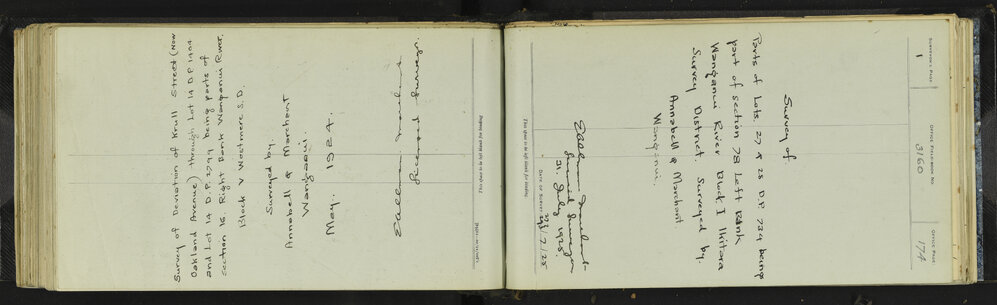 Survey of Deviation of Krull Street (Now
Oakland Avenue) through Lot 14 D.P. 1404
and Lot 14 D.P. 2799 being parts of
Section 16 Right Bank Wanganui River.
Block V Westmere S.D.
Surveyed by
Annabell & Marchant
Wanganui.
May. 1924.
Licensed Surveyor.
This space to be left blank for binding
This space to be left blank for binding
SURVEYOR'S PAGE
1
OFFICE FIELD-BOOK No.
3160
OFFICE PAGE
174
Survey of
Parts of Lots 27 & 28 D.P. 734 being
part of section 78 Left Bank
Wanganui River Block I Ikitara
Survey District. Surveyed by.
Annabell & Marchant.
Wanganui.
Licensed Surveyor
31. July 1925.
DATE OF SURVEY